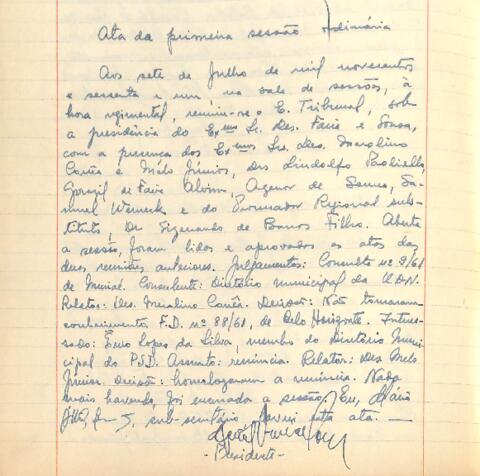 Ata da primeira sessão ordinária
Aos sete de Julho de mil novecentos
e sessenta e um, na sala de sessões, à
hora regimental, reuniu-se o E. Tribunal, sob
a presidência do Exmo Sr. Des. Faria e Sousa,
com a presença dos Exmos Srs. Des. Merolino
Corrêa e Melo Júnior, Drs. Lindolfo Paoliello,
Gorazil de Faria Alvim, Agenor de Senna, Sa-
muel Werneck e do Procurador Regional subs-
tituto, Dr. Sizenando de Barros Filho. Aberta
a sessão, foram lidas e aprovadas as atas das
duas reuniões anteriores. Julgamentos: Consulta nº 9/61
de Muriaé. Consulente: Diretório municipal da UDN.
Relator: Des. Merolino Corrêa. Decisão: Não tomaram
conhecimento. F.D. nº 88/61, de Belo Horizonte. Interes-
sado: Ênio Lopes da Silva, membro do Diretório Muni-
cipal do PSD. Assunto: renúncia. Relator: Des Melo
Júnior. Decisão: homologaram a renúncia. Nada
mais havendo, foi encerrada a sessão. Eu, Mário
sub-secretário, lavrei esta ata.
- Presidente -